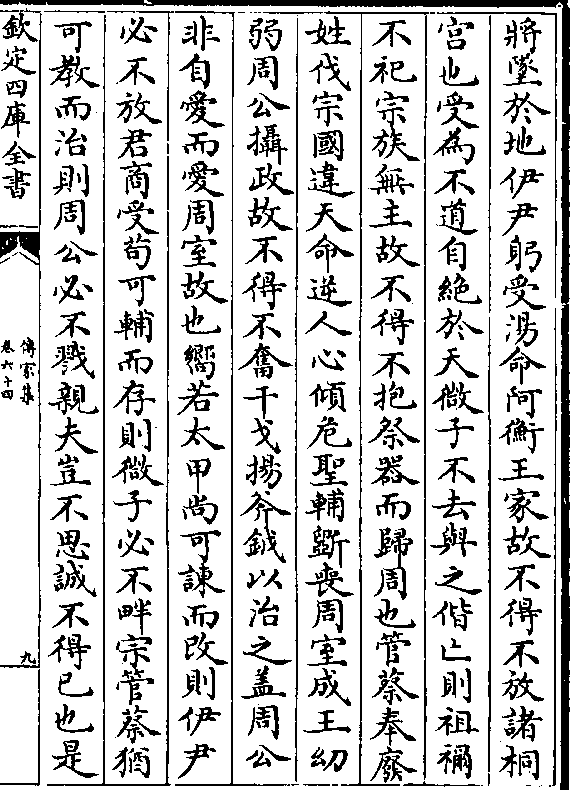 將墜於地伊尹躬受湯命阿衡王家故不得不放諸桐
宫也受為不道自絶於天微子不去與之偕亡則祖禰
不祀宗族無主故不得不抱祭器而歸周也管蔡奉廢
姓伐宗國違天命逆人心傾危聖輔斲喪周室成王幼
弱周公攝政故不得不奮干戈揚斧鉞以治之盖周公
非自愛而愛周室故也嚮若太甲尚可諫而改則伊尹
必不放君商受苟可輔而存則微子必不畔宗管蔡猶
可教而治則周公必不戮親夫豈不思誠不得已也是
欽定四庫全書
傳家集
卷六十四
九